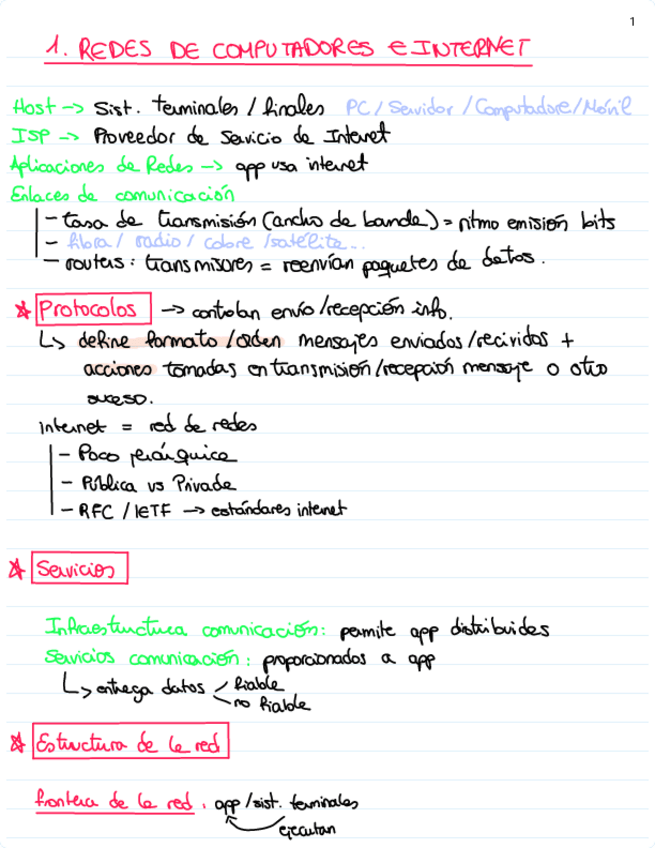 1
1. REDES DE COMPUTADORES E INTERNET
Host -> Sist. terminales / finales PC / Servidor / Computadore / Móvil
ISP -> Proveedor de Servicio de Internet
Aplicaciones de Redes -> app usa internet
Enlaces de comunicación
- tasa de transmisión (ancho de banda) = ritmo emisión bits
- fibra / radio / cobre / satélite...
- routers : transmisores = reenvían paquetes de datos.
* Protocolos -> controlan envío / recepción info.
↳ define formato / orden mensajes enviados / recividos +
acciones tomadas en transmisión / recepción mensaje o otro
suceso.
internet = red de redes
- Poco jerárquica
- Pública vs Privada
- RFC / IETF -> estándares internet
* Servicios
Infraestructura comunicación: permite app distribuides
Servicios comunicación: proporcionados a app
↳ entrega datos fiable
no fiable
* Estructura de la red
frontera de la red : app / sist. terminales
ejecutan